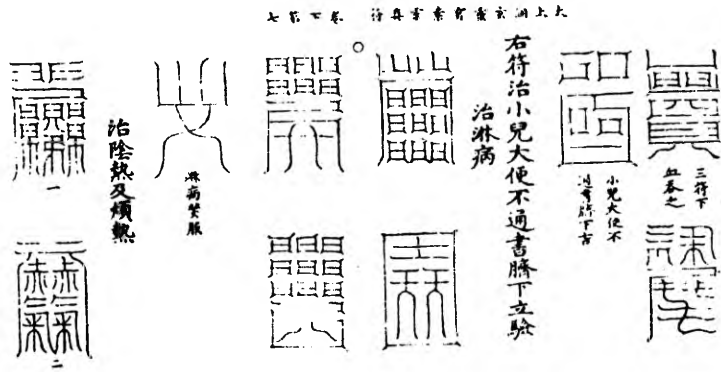 太上洞玄靈寶素靈真符 卷下第七
三符下
血吞之
小兒大便不
通書臍下吉
右符治小兒大便不通書臍下立驗
治淋病
淋病服
治陰熱及煩熱
一
二